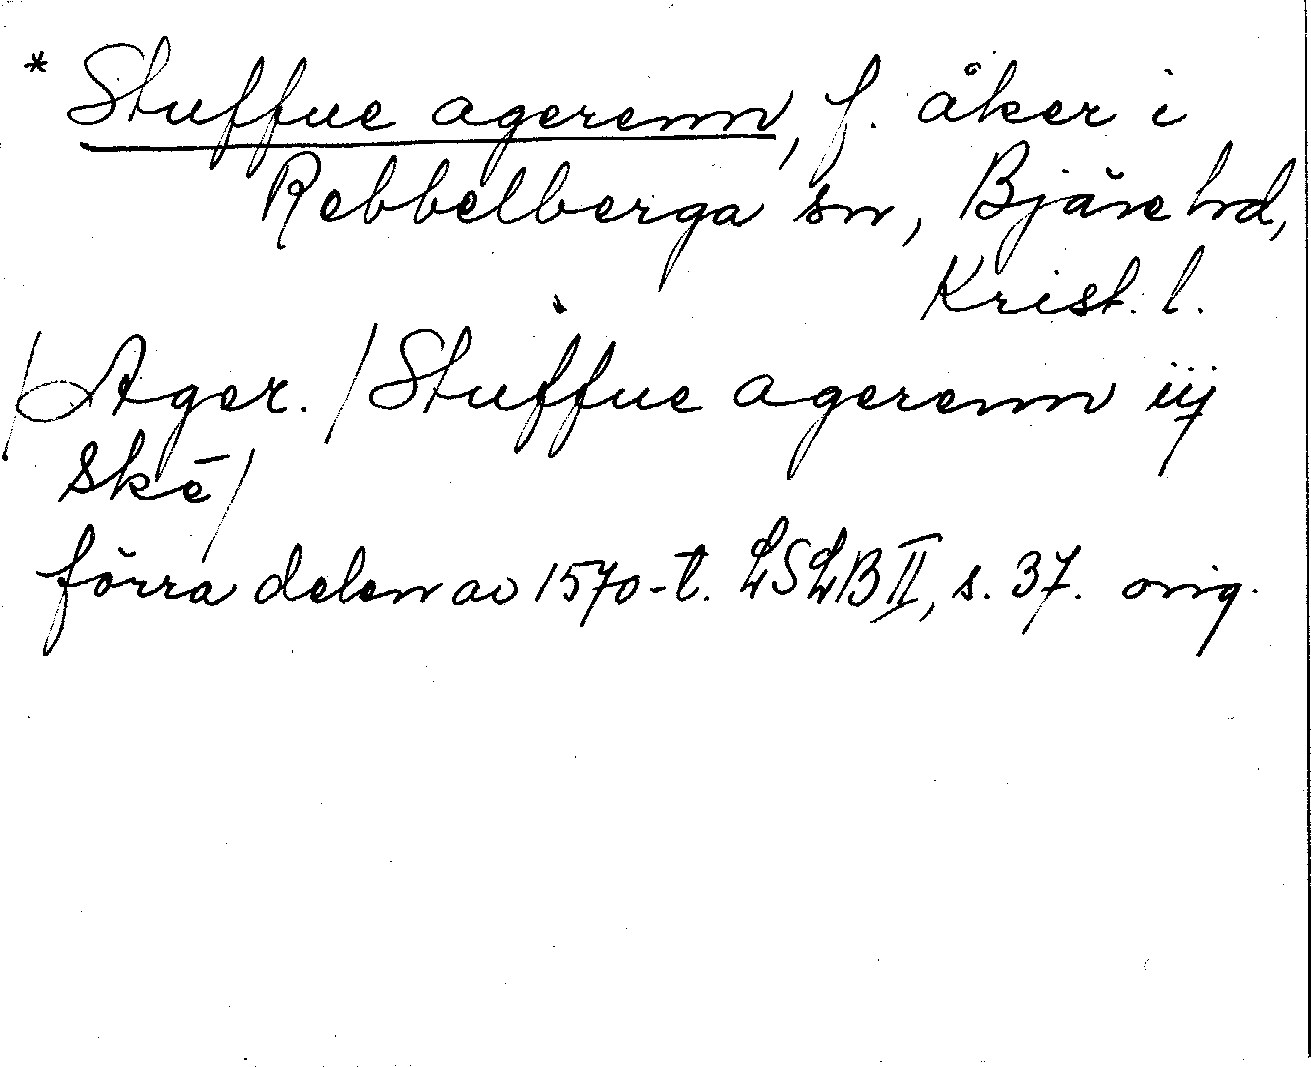 * Stuffue agerenn, f. åker i
Rebbelberga sn, Bjäre hd,
Krist. l.
/Ager./Stuffue agerenn iij
skē/
förra delen av 1570-t. LSLB II, s. 37. orig.